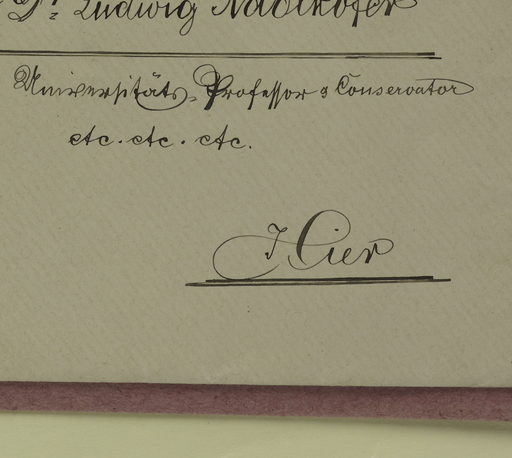 Dr. Ludwig Radlkofer
Universitäts-Professor & Conservator
etc. etc. etc.
Hier